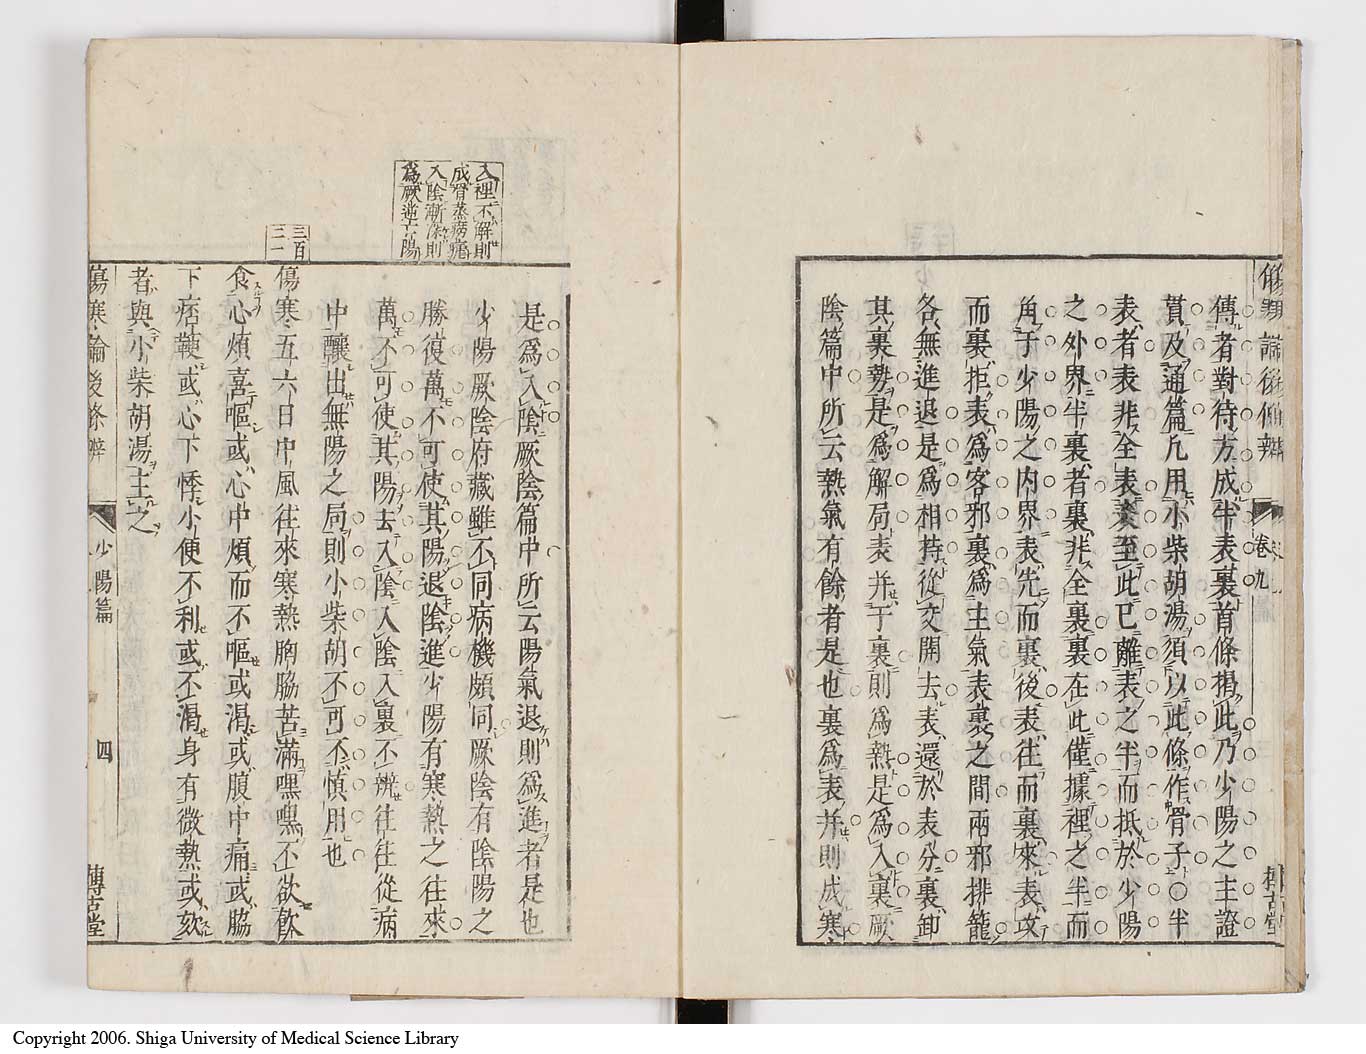 卷九
傳者對待方成半表裏首條揭此乃少陽之主證
貫及通篇凡用小柴胡湯須以此條作骨子○半
表者表非全表表至此已離表之半而抵於少陽
之外界半裏者裏非全裏裏在此僅據裡之半而
角于少陽之内界表先而裏後表往而裏來表攻
而裏拒表爲客邪裏爲主氣表裏之間兩邪排籠
各無進退是爲相持從交開去表還於表分裏卸
其裏勢是爲解局表并于裏則爲熱是爲入裏厥
陰篇中所云熱氣有餘者是也裏爲表并則成寒
是爲入陰厥陰篇中所云陽氣退則爲進者是也
少陽厥陰府藏雖不同病機頗同厥陰有陰陽之
勝復萬不可使其陽退陰進少陽有寒熱之往來
萬不可使其陽去入陰入陰入裏不辨往往從病
中釀出無陽之局則小柴胡不可不慎用也
入裡不解則
成骨蒸癆瘧
入陰漸深則
爲厥逆亡陽
三百
三一
傷寒五六日中風往來寒熱胸脇苦滿嘿嘿不欲飲
食心煩喜嘔或心中煩而不嘔或渴或腹中痛或脇
下痞鞕或心下悸小便不利或不渴身有微熱或欬
者與小柴胡湯主之
傷寒論後條辨
少陽篇
四
博古堂